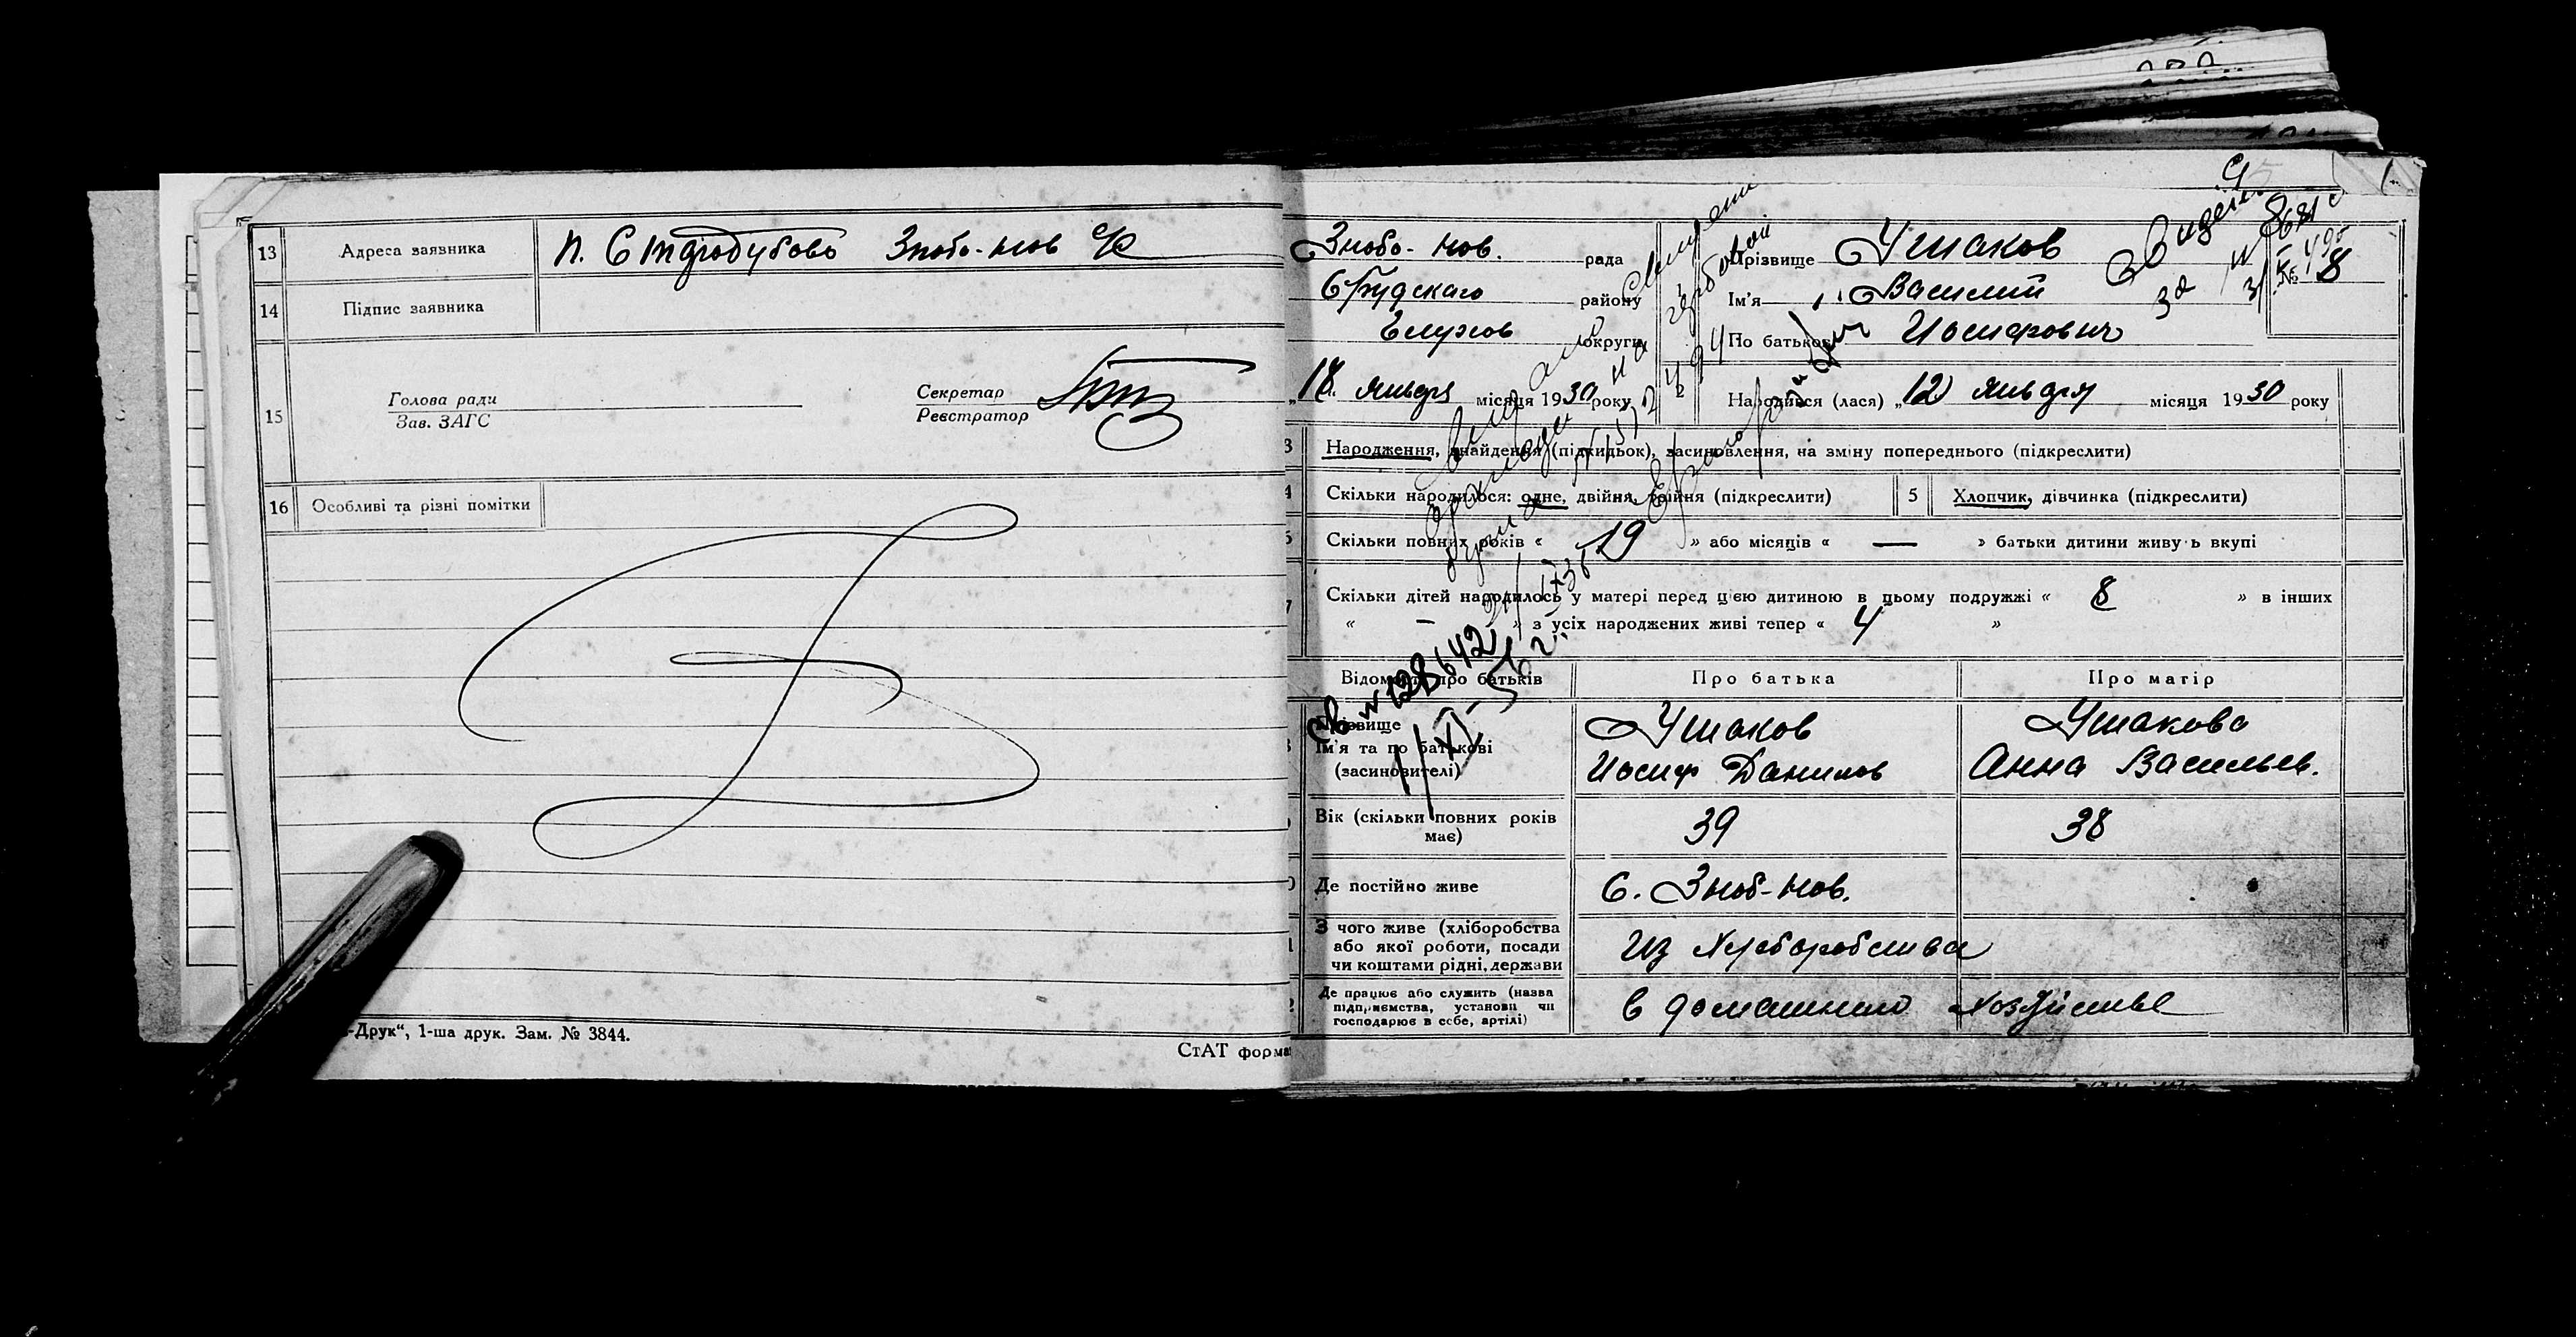 13 Адреса заявника п. Стародубово Знобо-Нов
14 Підпис заявника
15 Голова ради
Зав. ЗАГС
Секретар
Реєстратор
16 Особливі та різні помітки
-Друк“, 1-ша друк. Зам. № 3844.
СтАТ форма
Знобо-Нов. рада
С/Будскаго району
Глухов округи
„18“ января місяця 1930 року
Прізвище Ушаков
Ім'я Василий
По батькові Иосифович
№ 8
Народився (лася) „12“ января місяця 1930 року
3 Народження, знайдення (підкидьок), засиновлення, на зміну попереднього (підкреслити)
4 Скільки народилося: одне, двійня, трійня (підкреслити) 5 Хлопчик, дівчинка (підкреслити)
Скільки повних років « 19 » або місяців « — » батьки дитини живуть вкупі
7 Скільки дітей народилось у матері перед цією дитиною в цьому подружжі « 8 » в інших
« — » з усіх народжених живі тепер « 4 »
Св № 128642
Відомості про батьків Про батька Про матір
Прізвище Ушаков Ушакова
Ім'я та по батькові (засиновителі) Иосиф Данилов Анна Васильев.
Вік (скільки повних років має) 39 38
Де постійно живе С. Зноб-Нов.
З чого живе (хліборобства
або якої роботи, посади
чи коштами рідні, держави
Из хлеборобства
Де працює або служить (назва
підприємства, установи чи
господарює в себе, артілі)
в домашнем хозяйстве